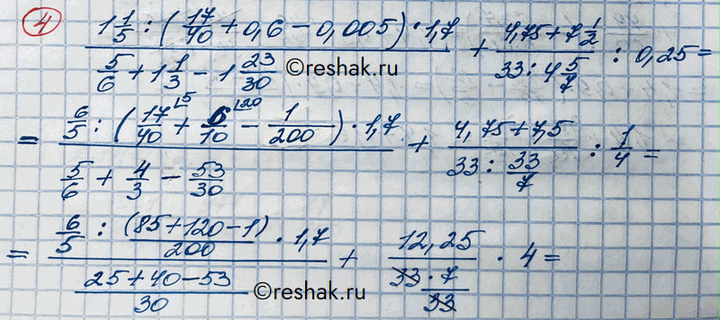 4) (1 1/5 : (17/40 + 0,6 − 0,005) · 1,7) / (5/6 + 1 1/3 − 1 23/30) + (4,75 + 7 1/2) / (33 : 4 5/7) : 0,25 =
©reshak.ru
= (6/5 : (17/40 ^15 + 6/10 ^120 − 1/200) · 1,7) / (5/6 + 4/3 − 53/30) + (4,75 + 7,5) / (33 : 33/7) : 1/4 =
= (6/5 : (85 + 120 − 1)/200 · 1,7) / ((25 + 40 − 53)/30) + 12,25 / (33 · 7 / 33) · 4 =
©reshak.ru